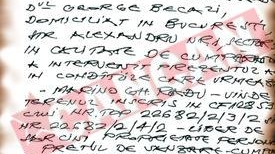 DL GEORGE BECALI,
DOMICILIAT IN BUCURESTI
STR ALEXANDRU NR.1, SECTOR
IN CALITATE DE CUMPARATOR
A INTERVENIT PREZENTUL
IN CONDITIILE CARE URMEAZA
- MARINO GH. RADU - VINDE
TERENUL INSCRIS IN CF 12852
CU NR. TOP 22682/2/3/2
NR 22682/2/4/2 LIBER DE
SARCINI PROPRIETATE PERSON
PRETUL DE VANZARE-CUMP